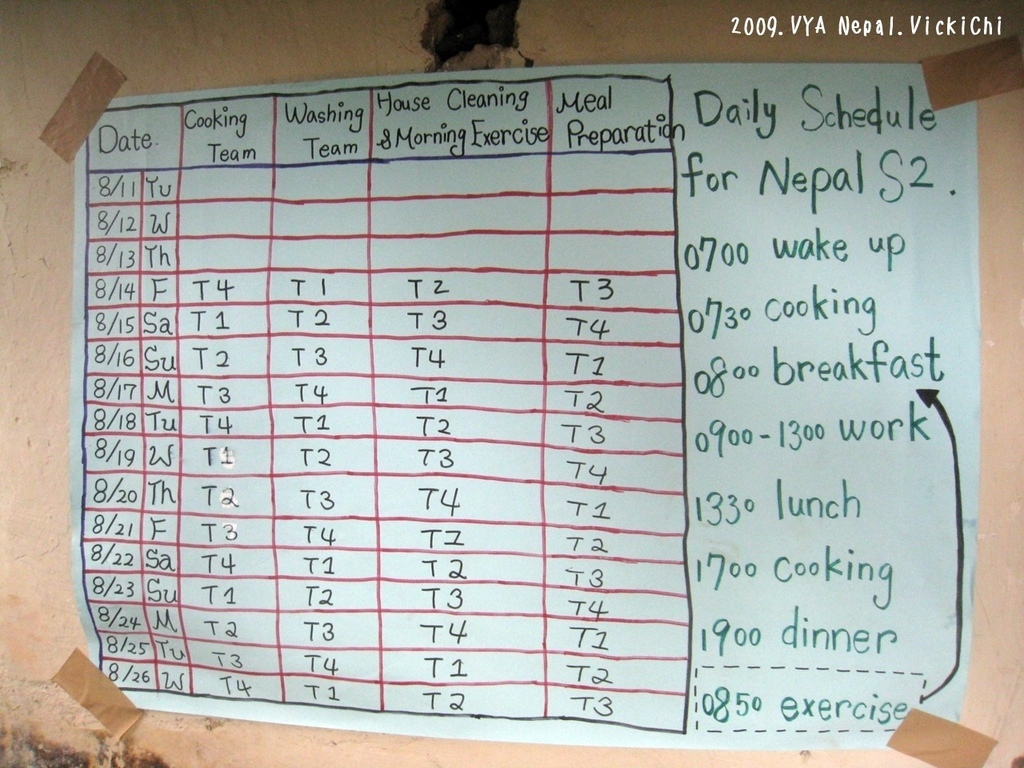 2009.VYA Nepal.VickiChi
Date. Cooking Team Washing Team House Cleaning & Morning Exercise Meal Preparation
8/11 Tu
8/12 W
8/13 Th
8/14 F T4 T1 T2 T3
8/15 Sa T1 T2 T3 T4
8/16 Su T2 T3 T4 T1
8/17 M T3 T4 T1 T2
8/18 Tu T4 T1 T2 T3
8/19 W T1 T2 T3 T4
8/20 Th T2 T3 T4 T1
8/21 F T3 T4 T1 T2
8/22 Sa T4 T1 T2 T3
8/23 Su T1 T2 T3 T4
8/24 M T2 T3 T4 T1
8/25 Tu T3 T4 T1 T2
8/26 W T4 T1 T2 T3
Daily Schedule
for Nepal S2.
0700 wake up
0730 cooking
0800 breakfast
0900-1300 work
1330 lunch
1700 cooking
1900 dinner
0850 exercise